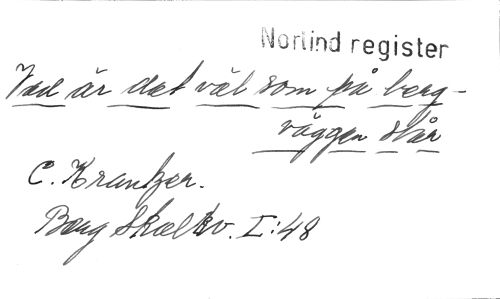 Norlind register
Vad är det väl som på berg-
väggen står
C. Krantzer.
Berg Skoltv. I:48